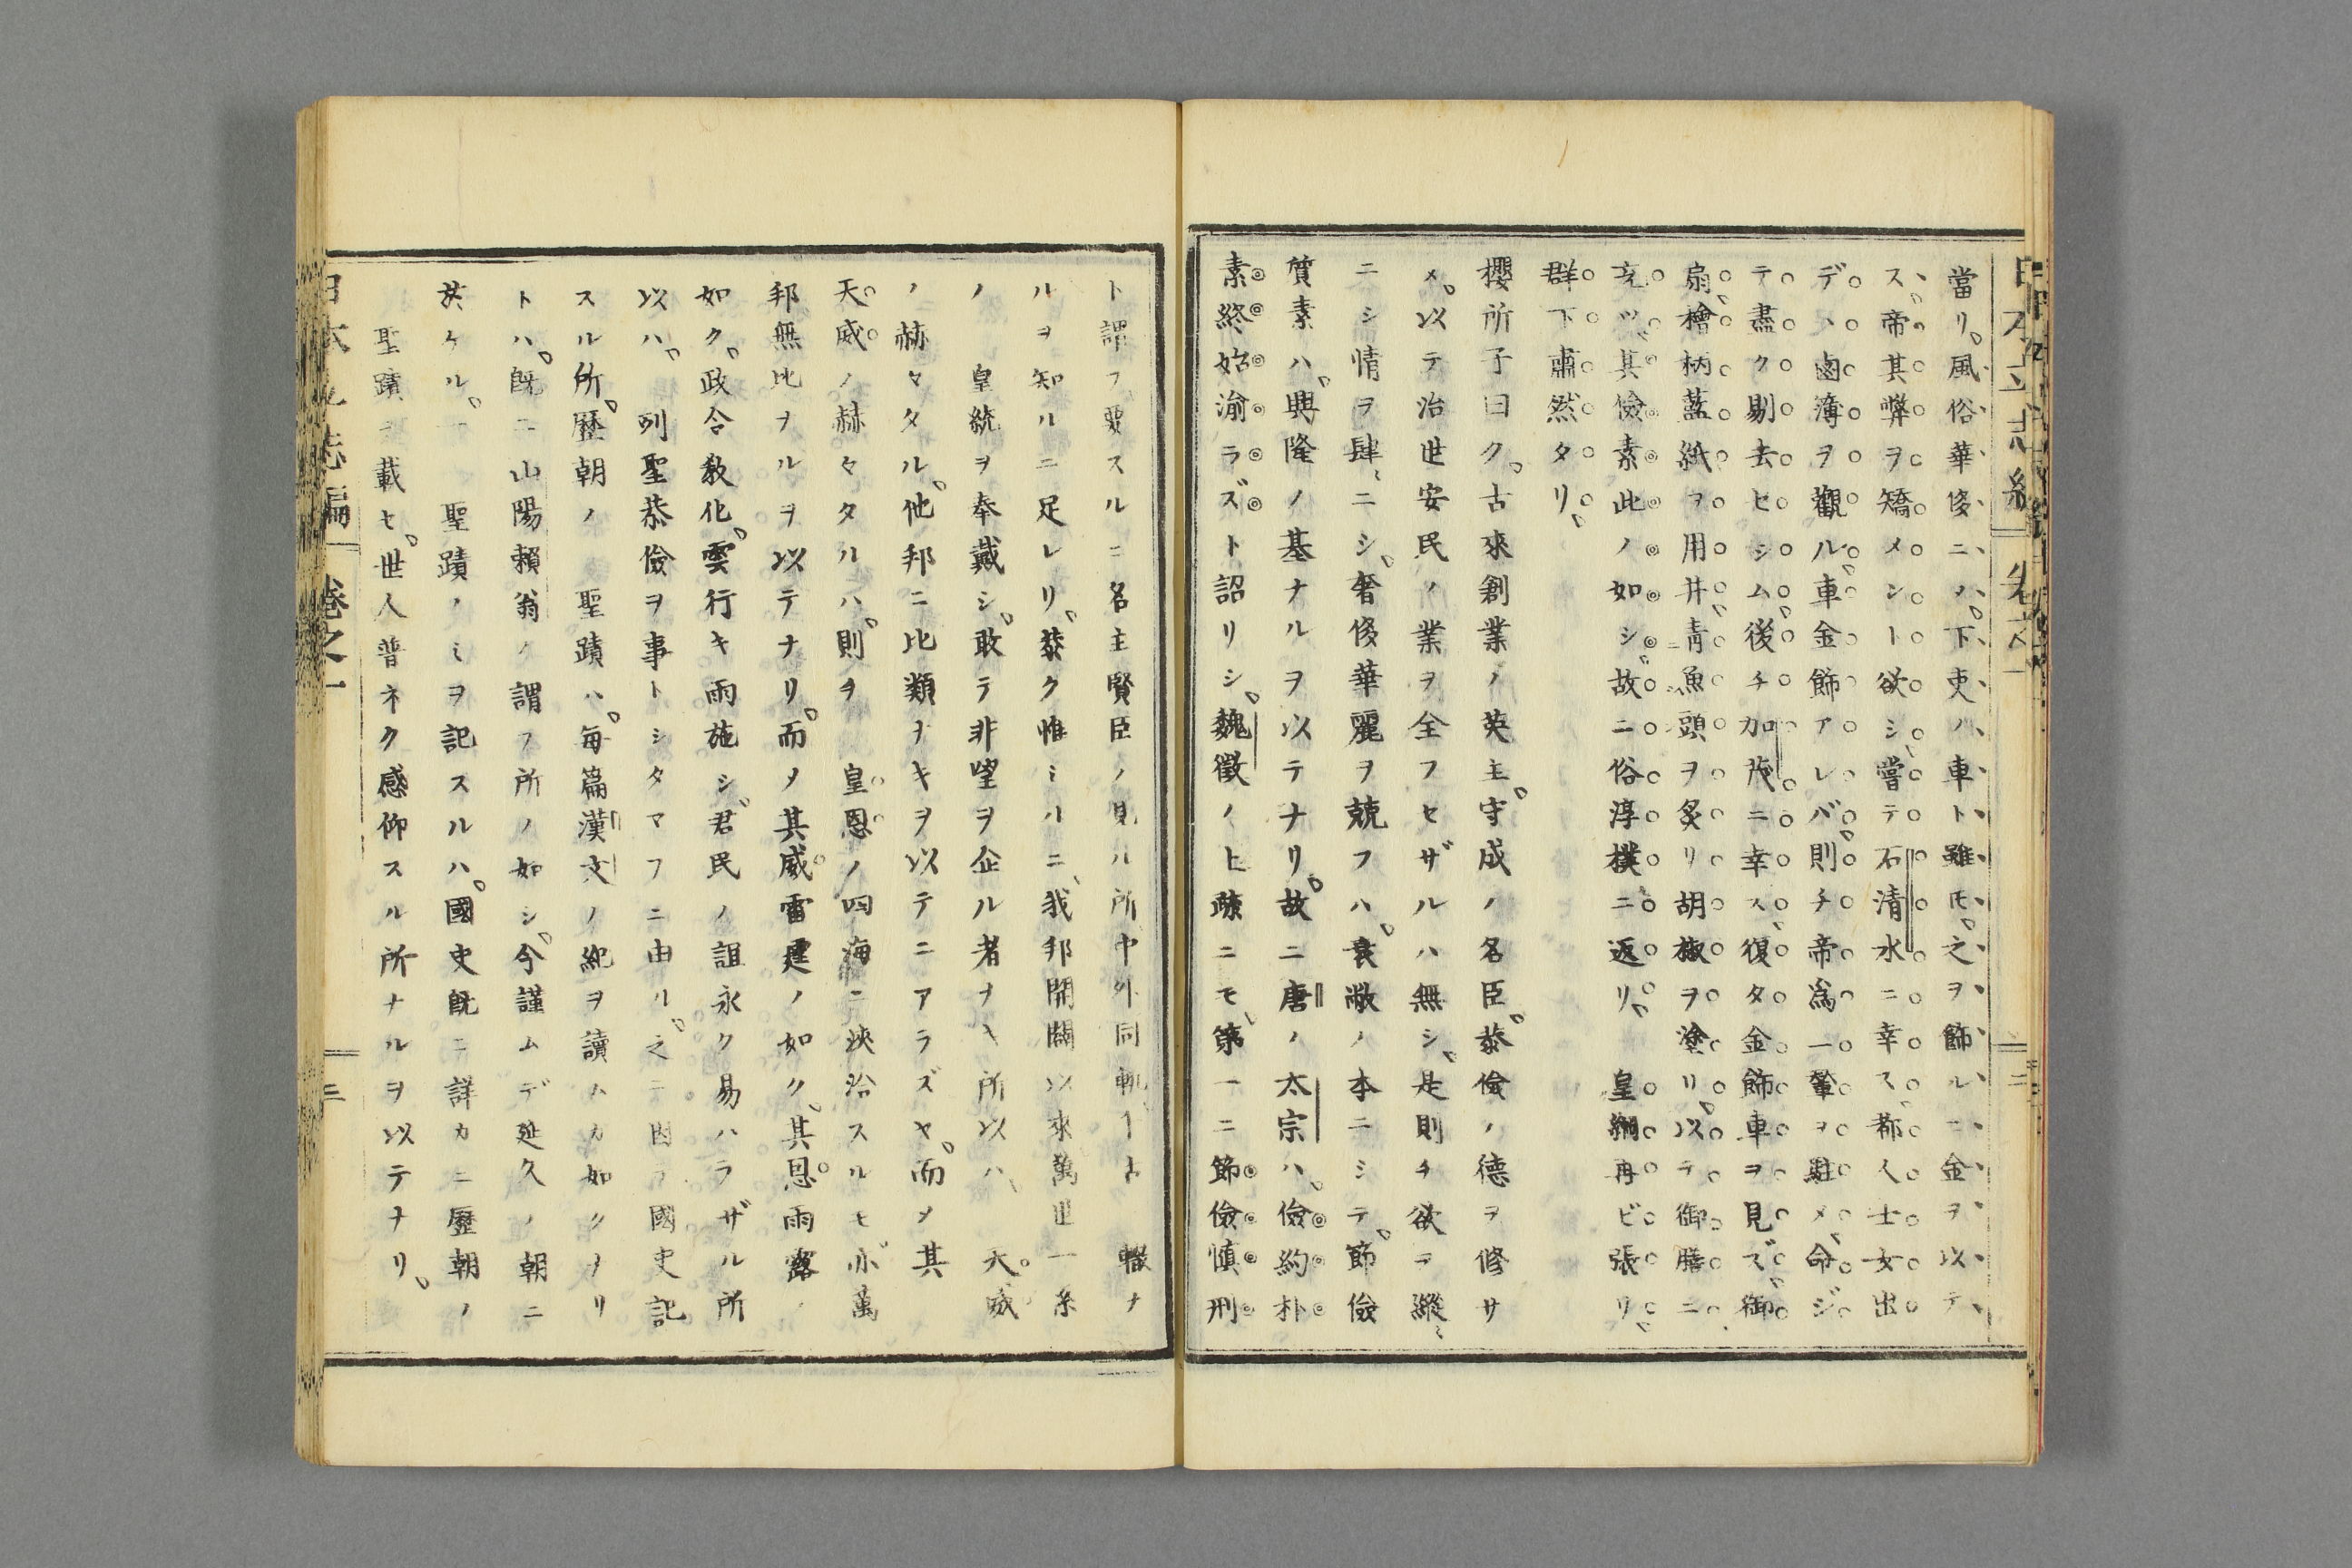 當リ。風俗華侈ニノ。下吏ノ車ト雖モ。之ヲ飾ルニ金ヲ以テ
ス。帝其弊ヲ矯メント欲シ、嘗テ石清水ニ幸ス、都人士女出
デヽ鹵簿ヲ觀ル、車金飾アレバ、則チ帝爲ニ輦ヲ駐メ、命ジ
テ盡ク剔去セシム、後チ加茂ニ幸ス、復タ金飾車ヲ見ズ、御
扇檜柄藍紙ヲ用井、青魚頭ヲ炙リ胡椒ヲ塗リ、以テ御膳ニ
充ツ、其儉素此ノ如シ、故ニ俗淳樸ニ返リ、皇綱再ビ張リ、
群下肅然タリ。
櫻所子曰ク。古來創業ノ英主。守成ノ名臣。恭儉ノ德ヲ修サ
メ。以テ治世安民ノ業ヲ全フセザルハ無シ。是則チ欲ヲ縱ヽ
ニシ情ヲ肆ヽニシ。奢侈華麗ヲ競フハ。衰敝ノ本ニシテ。節儉
質素ハ。興隆ノ基ナルヲ以テナリ。故ニ唐ノ太宗ハ。儉約朴
素終始渝ラズト詔リシ。魏徵ノ上疏ニモ、第一ニ節儉愼刑
ト謂フ。要スルニ名主賢臣ノ見ル所中外同軌一轍ナ
ルヲ知ルニ足レリ。恭ク惟ミルニ、我邦開闢以來萬世一系
ノ 皇統ヲ奉戴シ。敢テ非望ヲ企ル者ナキ所以ハ、 天威
ノ赫々タル。他邦ニ比類ナキヲ以テニアラズヤ。而ノ其
天威ノ赫々タルハ。則チ 皇恩ノ四海ニ浹洽スルモ亦萬
邦無比ヲルヲ以テナリ。而ノ其威雷霆ノ如ク。其恩雨露ノ
如ク。政令敎化。雲行キ雨施シ。君民ノ誼永ク易ハラザル所
以ハ。 列聖恭儉ヲ事トシタマフニ由ル。之テ因ヲ國史記
スル所。歷朝ノ 聖蹟ハ。每篇漢文ノ紀ヲ讀ムカ如クナリ
トハ。既ニ山陽賴翁ノ謂フ所ノ如シ。今謹ムデ延久ノ朝ニ
於ケル。 聖蹟ノミヲ記スルハ。國史既ニ詳カニ歷朝ノ
聖蹟ヲ載セ。世人普ネク感仰スル所ナルヲ以テナリ。
日本立志編 卷之一